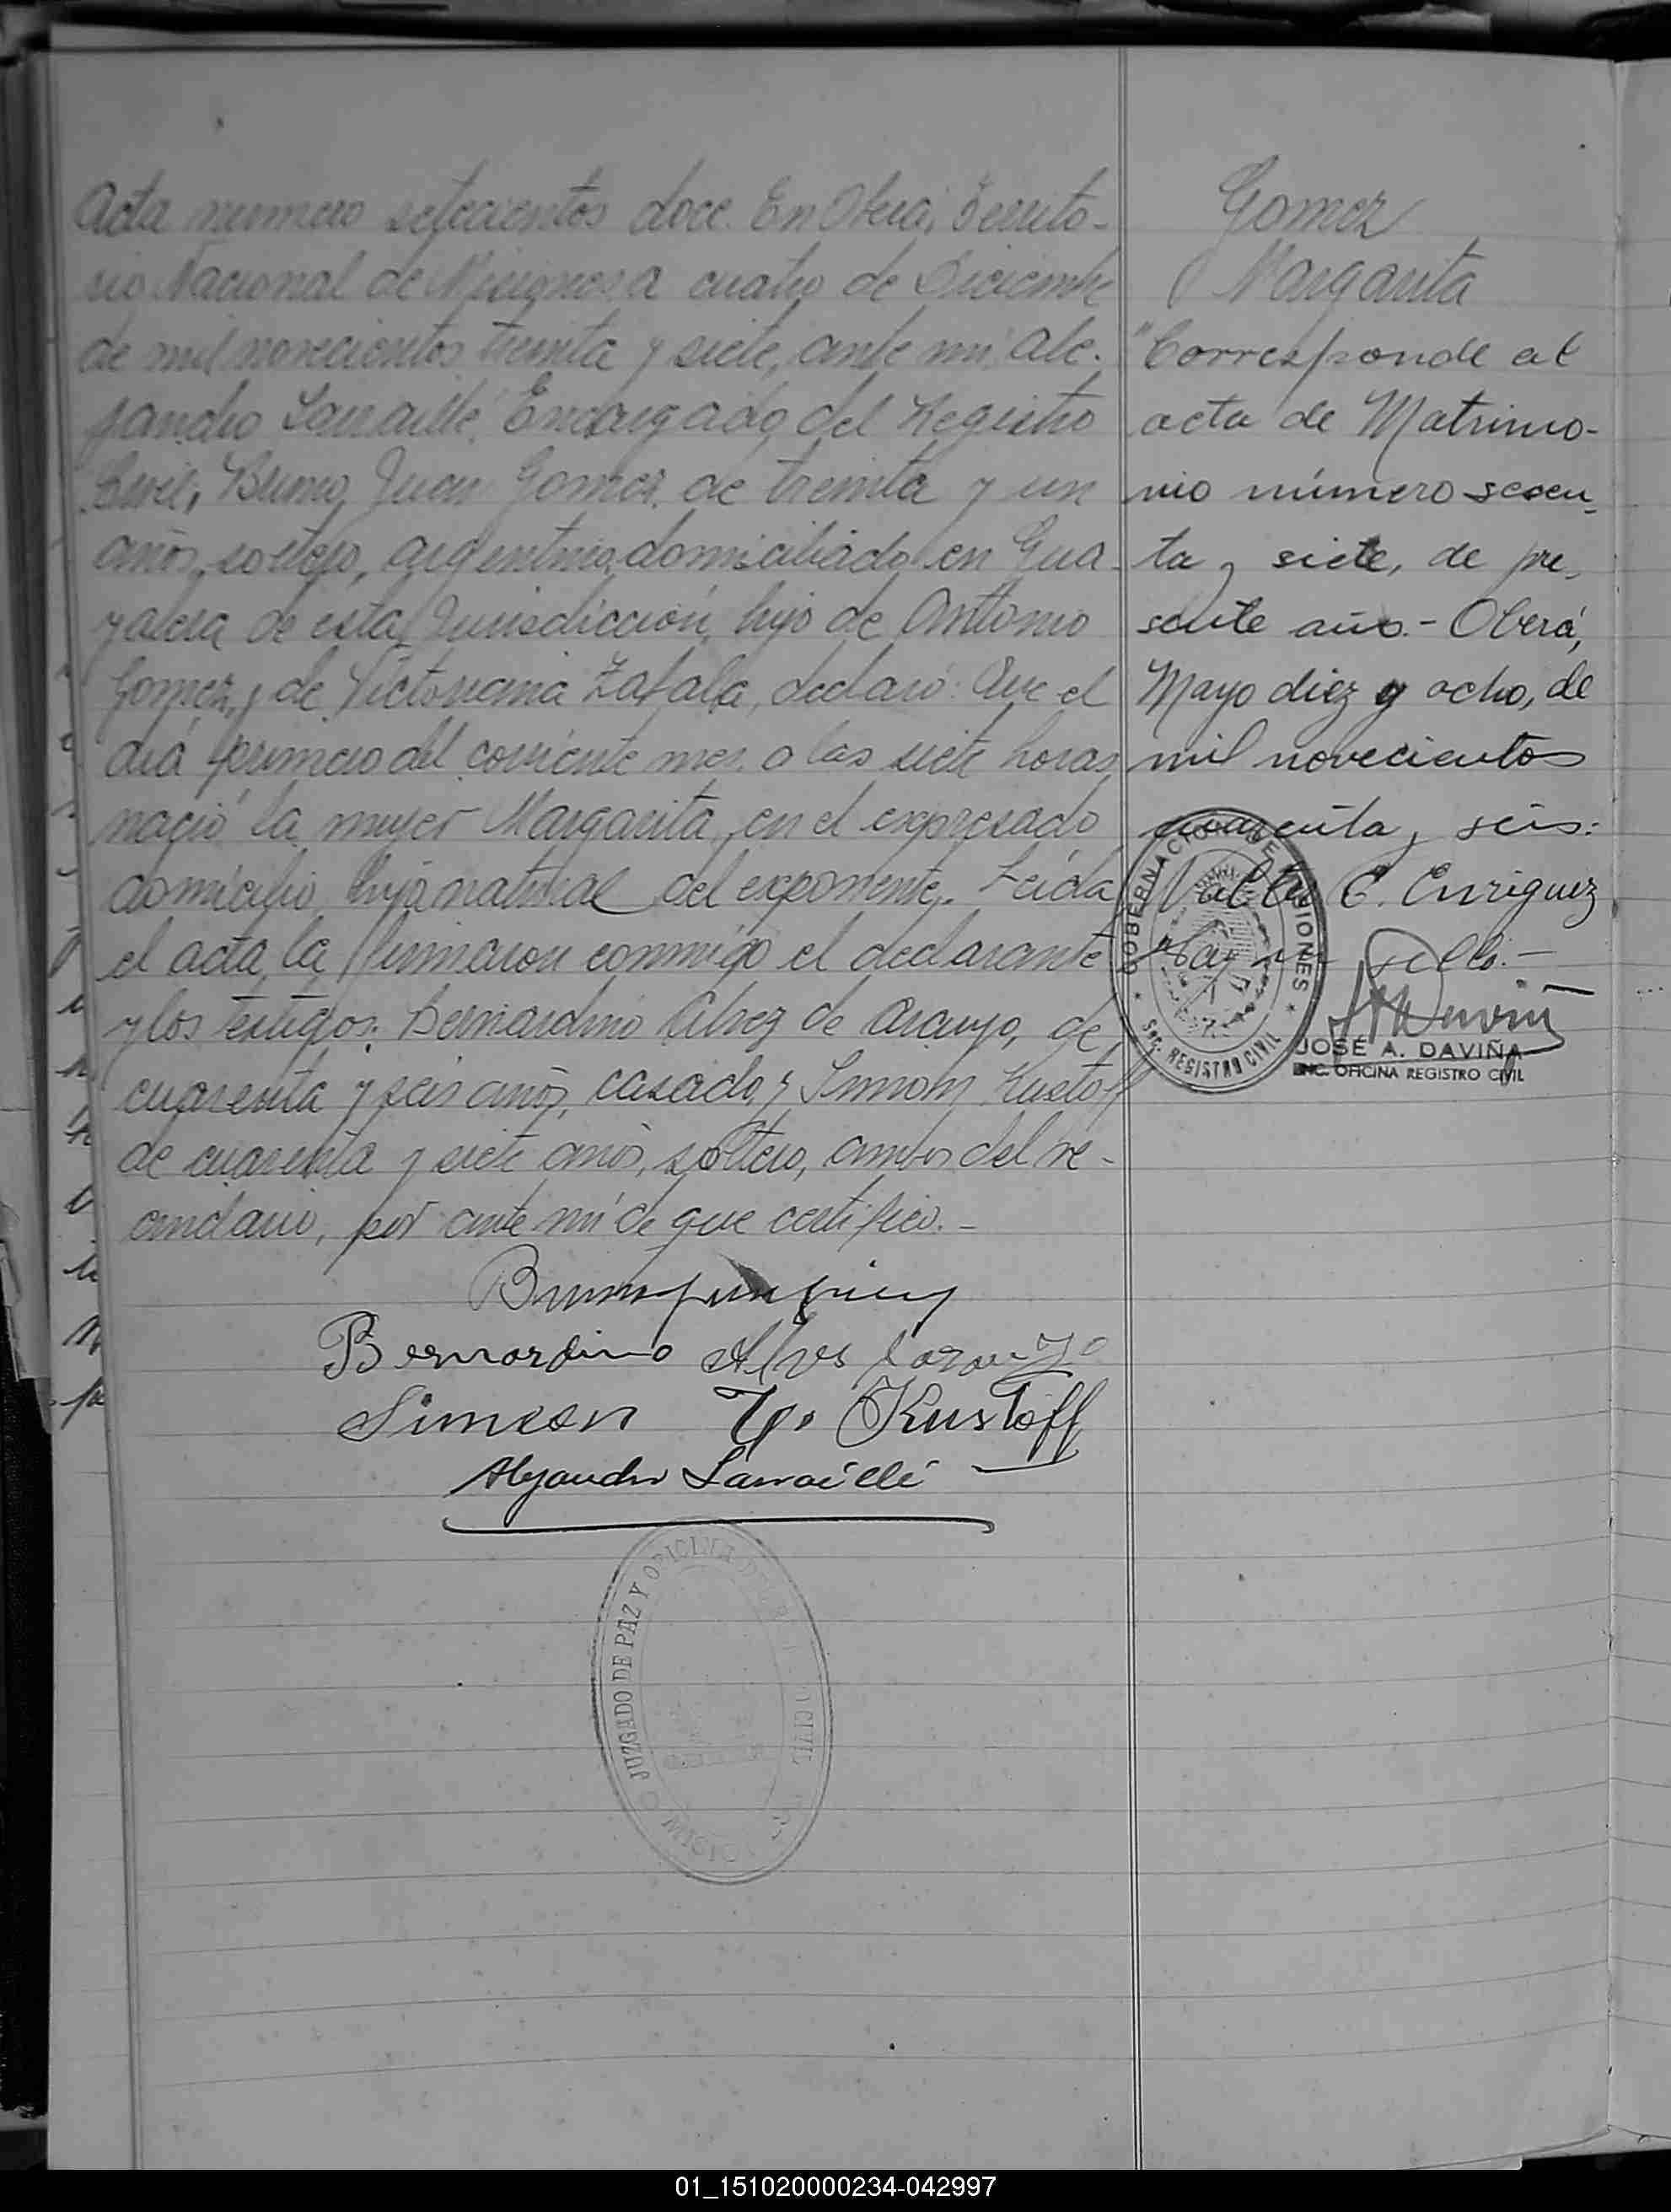 Acta numero setecientos doce. En Oberá, Territo-
rio Nacional de Misiones a cuatro de Diciembre
de mil novecientos treinta y siete, ante mi, Ale-
jandro Larraille, Encargado del Registro
Civil, Bruno Juan Gomez, de treinta y un
años, soltero, argentino, domiciliado en Gua-
yabera de esta Jurisdicción, hijo de Antonio
Gomez, y de Victoriana Zafala, declaró: Que el
día primero del corriente mes, a las siete horas
nació la mujer Margarita, en el expresado
domicilio, hija natural del exponente. Leída
el acta, la firmaron conmigo el declarante
y los testigos: Bernardino Alvez de Araujo, de
cuarenta y seis años, casado, y Simon Kustoff
de cuarenta y siete años, soltero, ambos del ve-
cindario, por ante mí de que certifico.-
Bernardino Alves
Simeon Kustoff
Alejandro Larraillé
JUZGADO DE PAZ Y OFICINA DEL CIVIL
Gomez
Margarita
"Corresponde al
acta de Matrimo-
nio número sesen-
ta y siete, de pre-
sente año.- Oberá,
Mayo diez y ocho, de
mil novecientos
cuarenta y seis:
C. Enriquez
Hay un sello.-
GOBERNACION DE MISIONES
Sec. REGISTRO CIVIL
JOSÉ A. DAVIÑA
ENC. OFICINA REGISTRO CIVIL
01_151020000234-042997